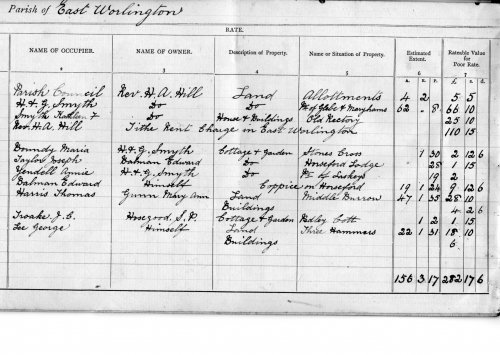 Parish of East Worlington
RATE.
NAME OF OCCUPIER. NAME OF OWNER. Description of Property. Name or Situation of Property. Estimated Extent. Rateable Value for Poor Rate.
2 3 4 5 6 7
A. R. P. £
Parish Council Rev. H. A. Hill Land Allotments 4 2 5 5
H. & G. Smyth Do Do Pt of Glebe & Marghams 62 . 8 66 10
Smyth & House & Buildings Old Rectory 25 10
Rev. H. A. Hill Tithe Rent Charge in East Worlington 110 15
Boundy Maria H. & G. Smyth Cottage & Garden Stones Cross 1 30 2 12 6
Taylor Joseph Balman Edward Do Horseford Lodge 28 1 15
Yendell Annie H. & G. Smyth Do Pt 19 2
Balman Edward Himself Coppice in Horseford 19 1 24 9 12 6
Harris Thomas Gunn Mary Ann Land Middle Burrow 47 1 35 28 10
Buildings 4 2 6
Troake J. C. Hosegood S. P. Cottage & Garden Radley Cott 1 2 1 15
Lee George Himself Land Three Hammers 22 1 31 18 10
Buildings 6
156 3 17 282 17 6